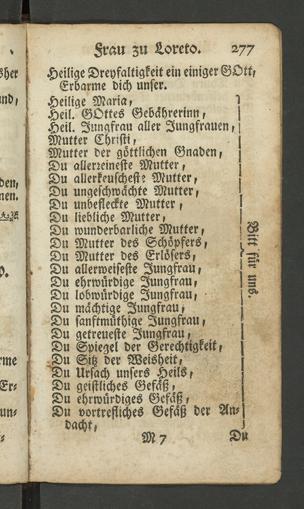 Frau zu Loreto. 277
Heilige Dreyfaltigkeit ein einiger GOtt,
Erbarme dich unser.
Heilige Maria,
Heil. GOttes Gebährerinn,
Heil. Jungfrau aller Jungfrauen,
Mutter Christi,
Mutter der göttlichen Gnaden,
Du allerreineste Mutter,
Du allerkeuscheste Mutter,
Du ungeschwächte Mutter,
Du unbefleckte Mutter,
Du liebliche Mutter,
Du wunderbarliche Mutter,
Du Mutter des Schöpfers,
Du Mutter des Erlösers,
Du allerweiseste Jungfrau,
Du ehrwürdige Jungfrau,
Du lobwürdige Jungfrau,
Du mächtige Jungfrau,
Du sanftmüthige Jungfrau,
Du getreueste Jungfrau,
Du Spiegel der Gerechtigkeit,
Du Sitz der Weisheit,
Du Ursach unsers Heils,
Du geistliches Gefäß,
Du ehrwürdiges Gefäß,
Du vortrefliches Gefäß der An-
dacht,
Bitt für uns.
M 7 Du